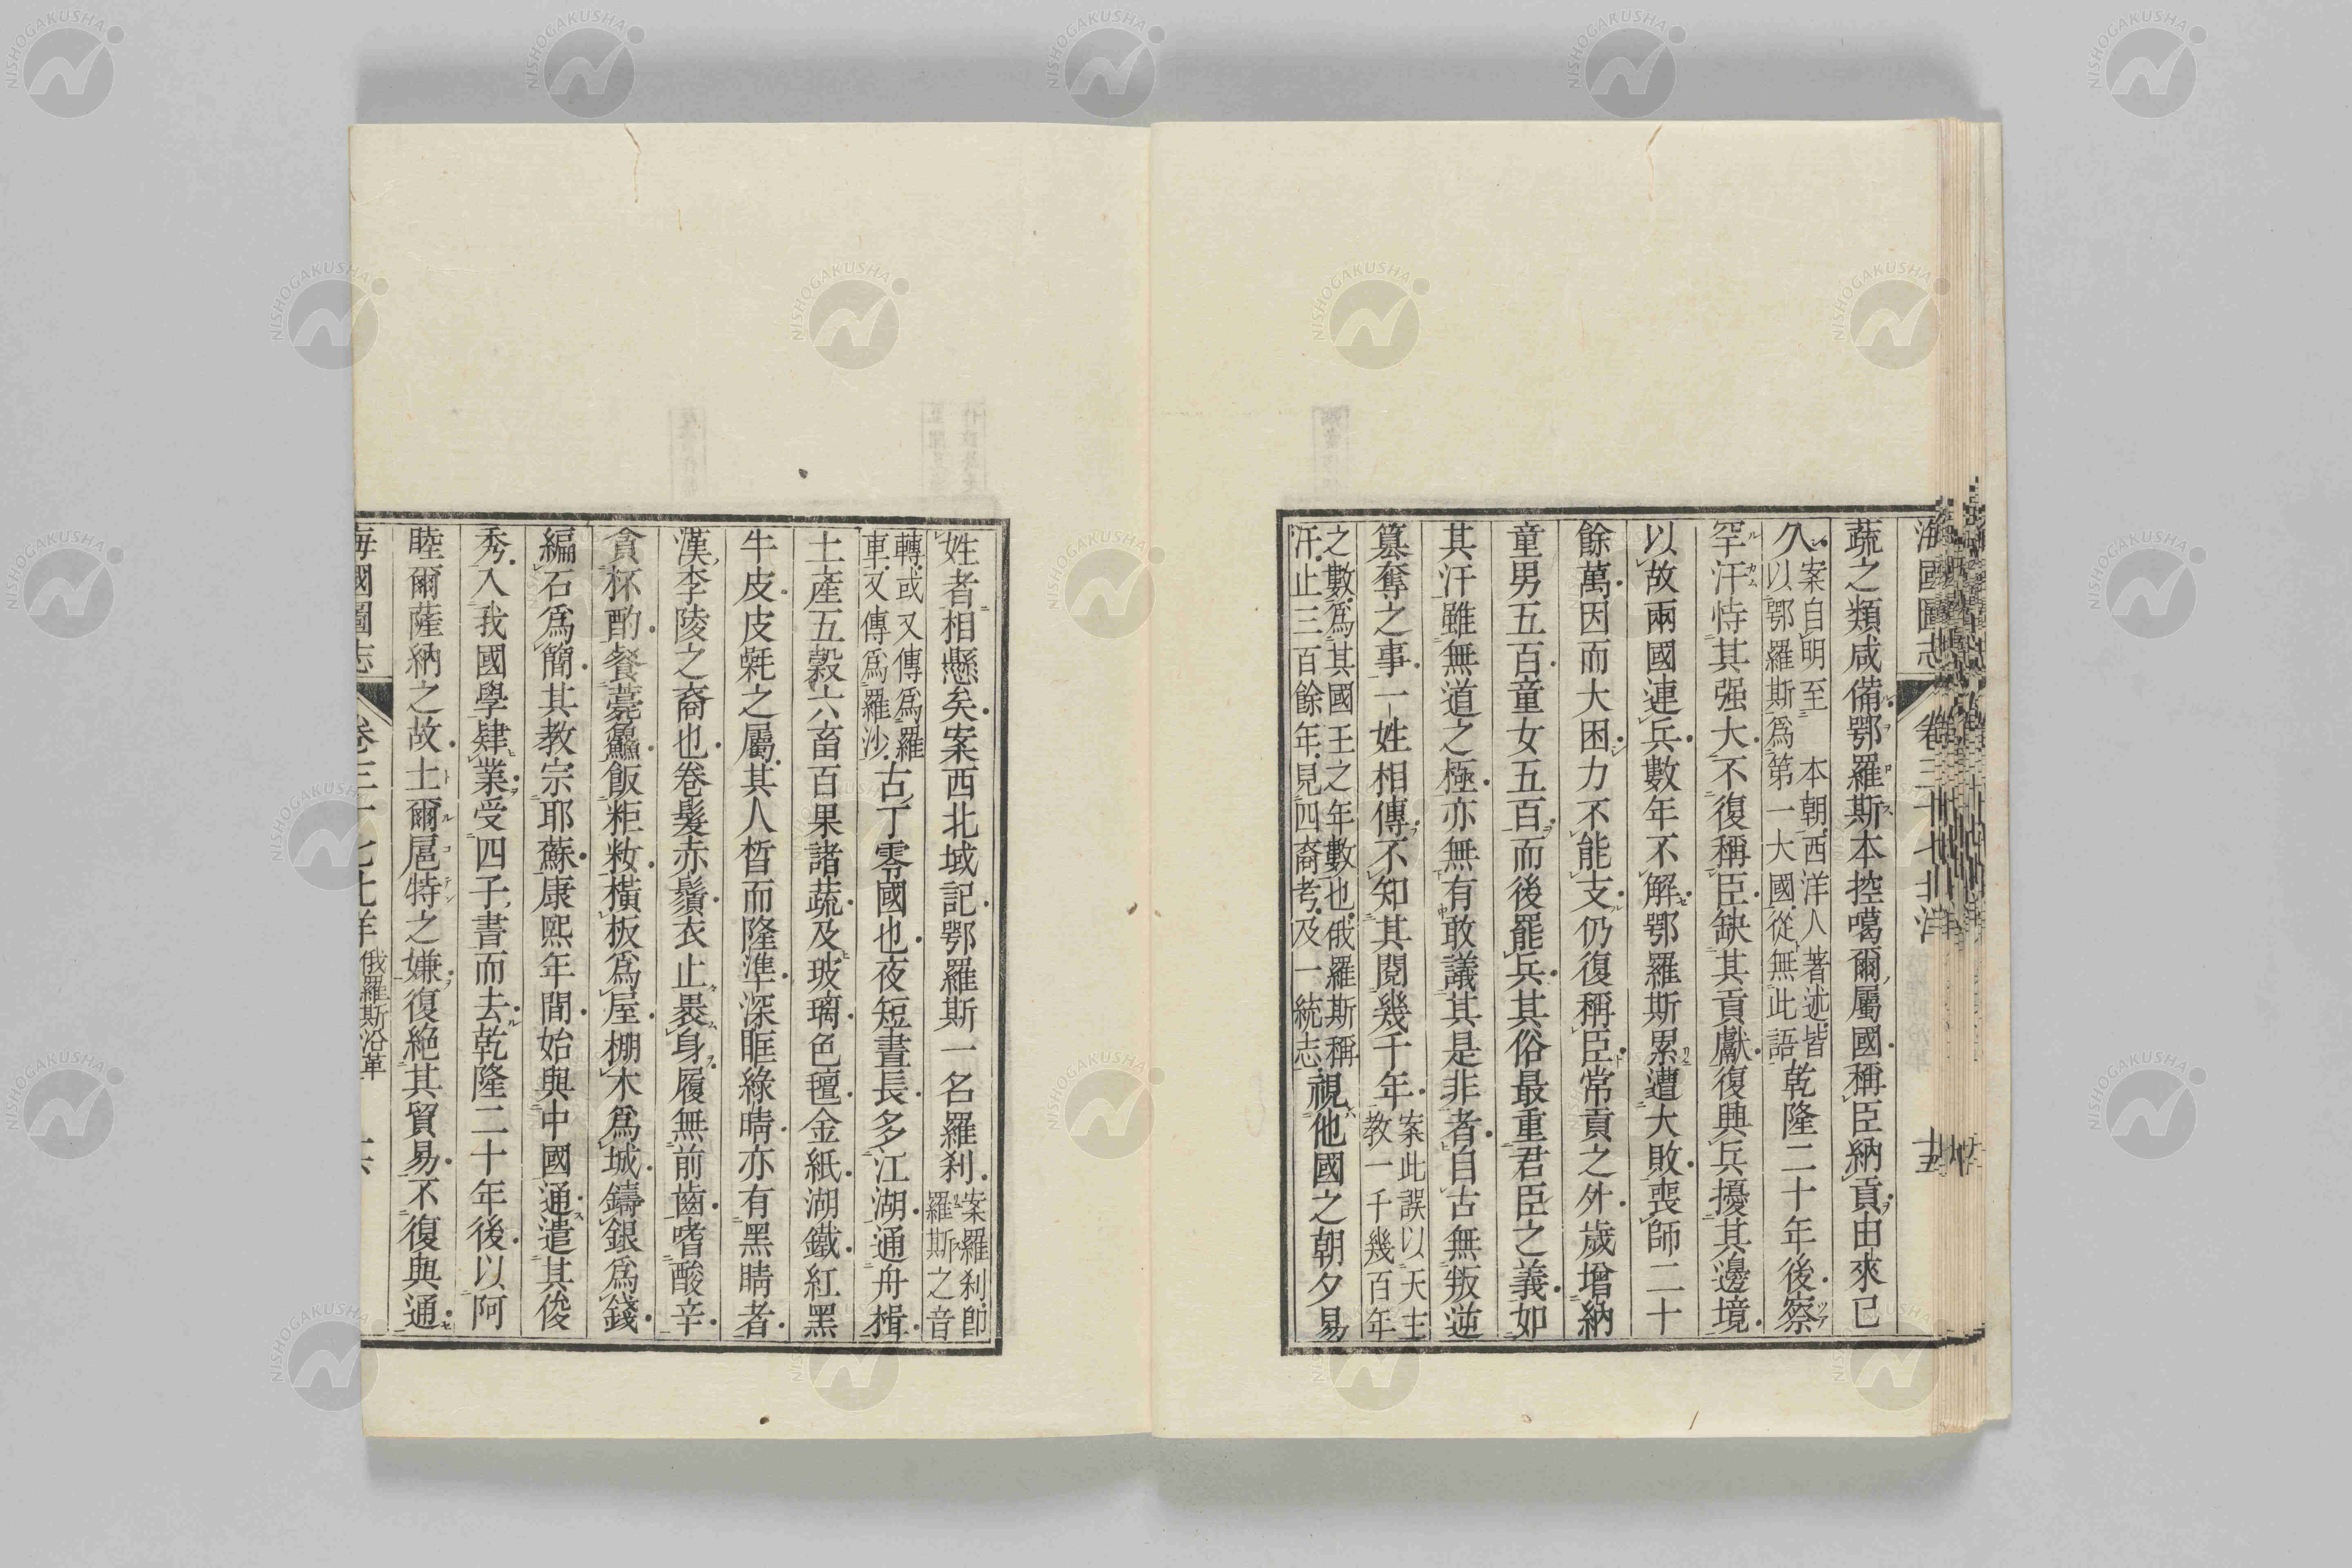 海國圖志 卷三十七北洋 十五
蔬之類咸備鄂羅斯本控噶爾屬國稱臣納貢由來已
久案自明至 本朝西洋人著述皆以鄂羅斯爲第一大國從無此語乾隆二十年後察
罕汗恃其强大不復稱臣缺其貢獻復興兵擾其邊境
以故兩國連兵數年不解鄂羅斯累遭大敗喪師二十
餘萬因而大困力不能支仍復稱臣常貢之外歲增納
童男五百童女五百而後罷兵其俗最重君臣之義如
其汗雖無道之極亦無有敢議其是非者自古無叛逆
簒奪之事一姓相傳不知其閱幾千年案此誤以天主教一千幾百年
之數爲其國王之年數也俄羅斯稱汗止三百餘年見四裔考及一統志視他國之朝夕易
姓者相懸矣案西北域記鄂羅斯一名羅刹案羅刹卽羅斯之音
轉或又傳爲羅車又傳爲羅沙古丁零國也夜短晝長多江湖通舟楫
土產五穀六畜百果諸蔬及玻璃色氊金紙湖鐵紅黑
牛皮皮毼之屬其人皙而隆準深眶綠睛亦有黑睛者
漢李陵之裔也卷髮赤鬚衣止裹身履無前齒嗜酸辛
貪杯酌餐薧鱻飯粔籹橫板爲屋棚木爲城鑄銀爲錢
編石爲簡其教宗耶蘇康熙年間始與中國通遣其俊
秀入我國學肄業受四子書而去乾隆二十年後以阿
睦爾薩納之故土爾扈特之嫌復絕其貿易不復與通
海國圖志 卷三十七北洋 俄羅斯沿革 十六
NISHOGAKUSHA